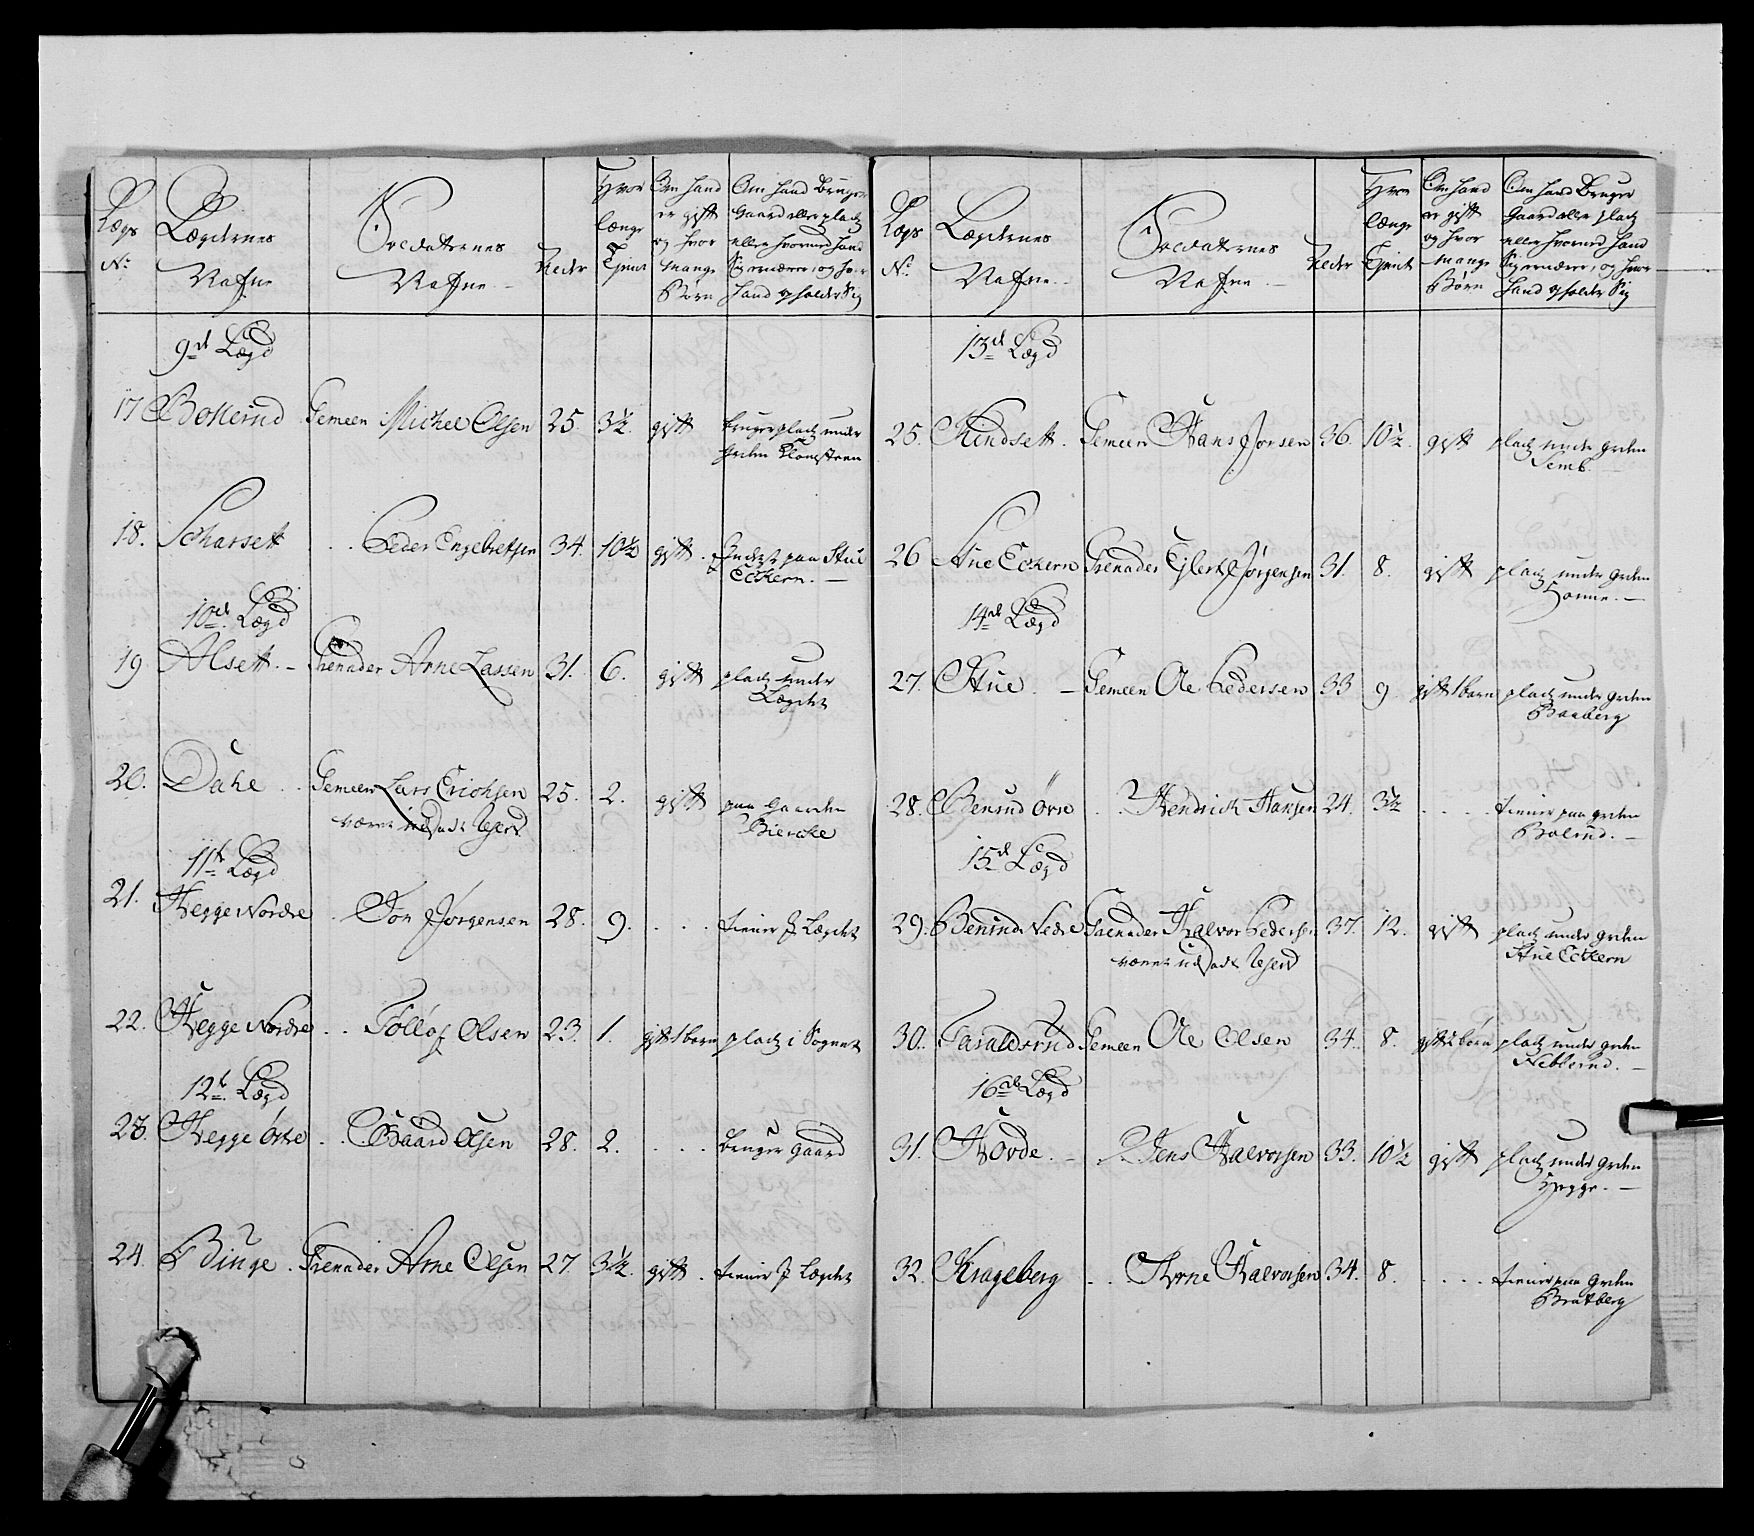 Lægs No
Lægdernes Nafne
Soldaternes Nafne
Alder
Hvor længe Tjent
Om hand er gift og hvor mange Børn
Om hand Bruger Gaard eller plads eller hvormed hand Sig ernærer, og hvor hand opholder Sig
9de Lægd
17 Bollerud Gemeen Michel Olsen 25. 3½. gift bruger plads under
Grden Klomsteen
18. Scharsett . . Peder Engebretsen 34. 10½ gift . Inderst paa Stue
Eckern. —
10de Lægd
19 Alsett. — Grenader Arne Larsen 31. 6. gift plads under
Lægdet
20. Dahe . . Gemeen Lars Erichsen 25. 2. gift paa Gaarden
været udj Gevd Biercke
11te Lægd
21. Hegge Nordre . Jon Jørgensen 28. 9. . . . tiener J Lægdet
22. Hegge Nordre . . Tolløf Olsen 23. 1. gift 1 barn plads i Sognet
12te Lægd
23. Hegge Østre . . Baard Olsen 28. 2. . . . bruger Gaard
24. Binge . Grenader Arne Olsen 27. 3½. gift . tiener J Lægdet
Lægs No
Lægdernes Nafne. —
Soldaternes Nafne. —
Alder
Hvor længe Tjent
Om hand er gift og hvor mange Børn
Om hand Bruger Gaard eller plads eller hvormed hand Sig ernærer, og hvor hand opholder Sig
13de Lægd
25. Kindsett . Gemeen Hans Jorsen 36. 10½. gift plads under Grden
Semb. —
26 Stue Eckern Grenader Ejlert Jørgensen 31. 8. gift plads under Grden
Sonne. —
14de Lægd
27. Stue. — Gemeen Ole Pedersen 33 9. gift 1 barn plads under Grden
Baaberg
28. Berud Øvre . . Hendrich Hansen 24. 3½ . . . . tiener paa Grden
Bolerud. —
15de Lægd
29. Berud Nedre Grenader Halvor Pedersen 37. 12. gift plads under Grden
Stue Eckern
30. Taraldsrud Gemeen Ole Olsen 34. 8. gift 2 børn plads under Grden
Nebberud. —
16de Lægd
31. Hovde. — . Jens Halvorsen 33. 10½ gift plads under Grden
Hegge. —
32. Krageberg . . Arne Halvorsen 34. 8. . . . . tiener paa Grden
Bratberg